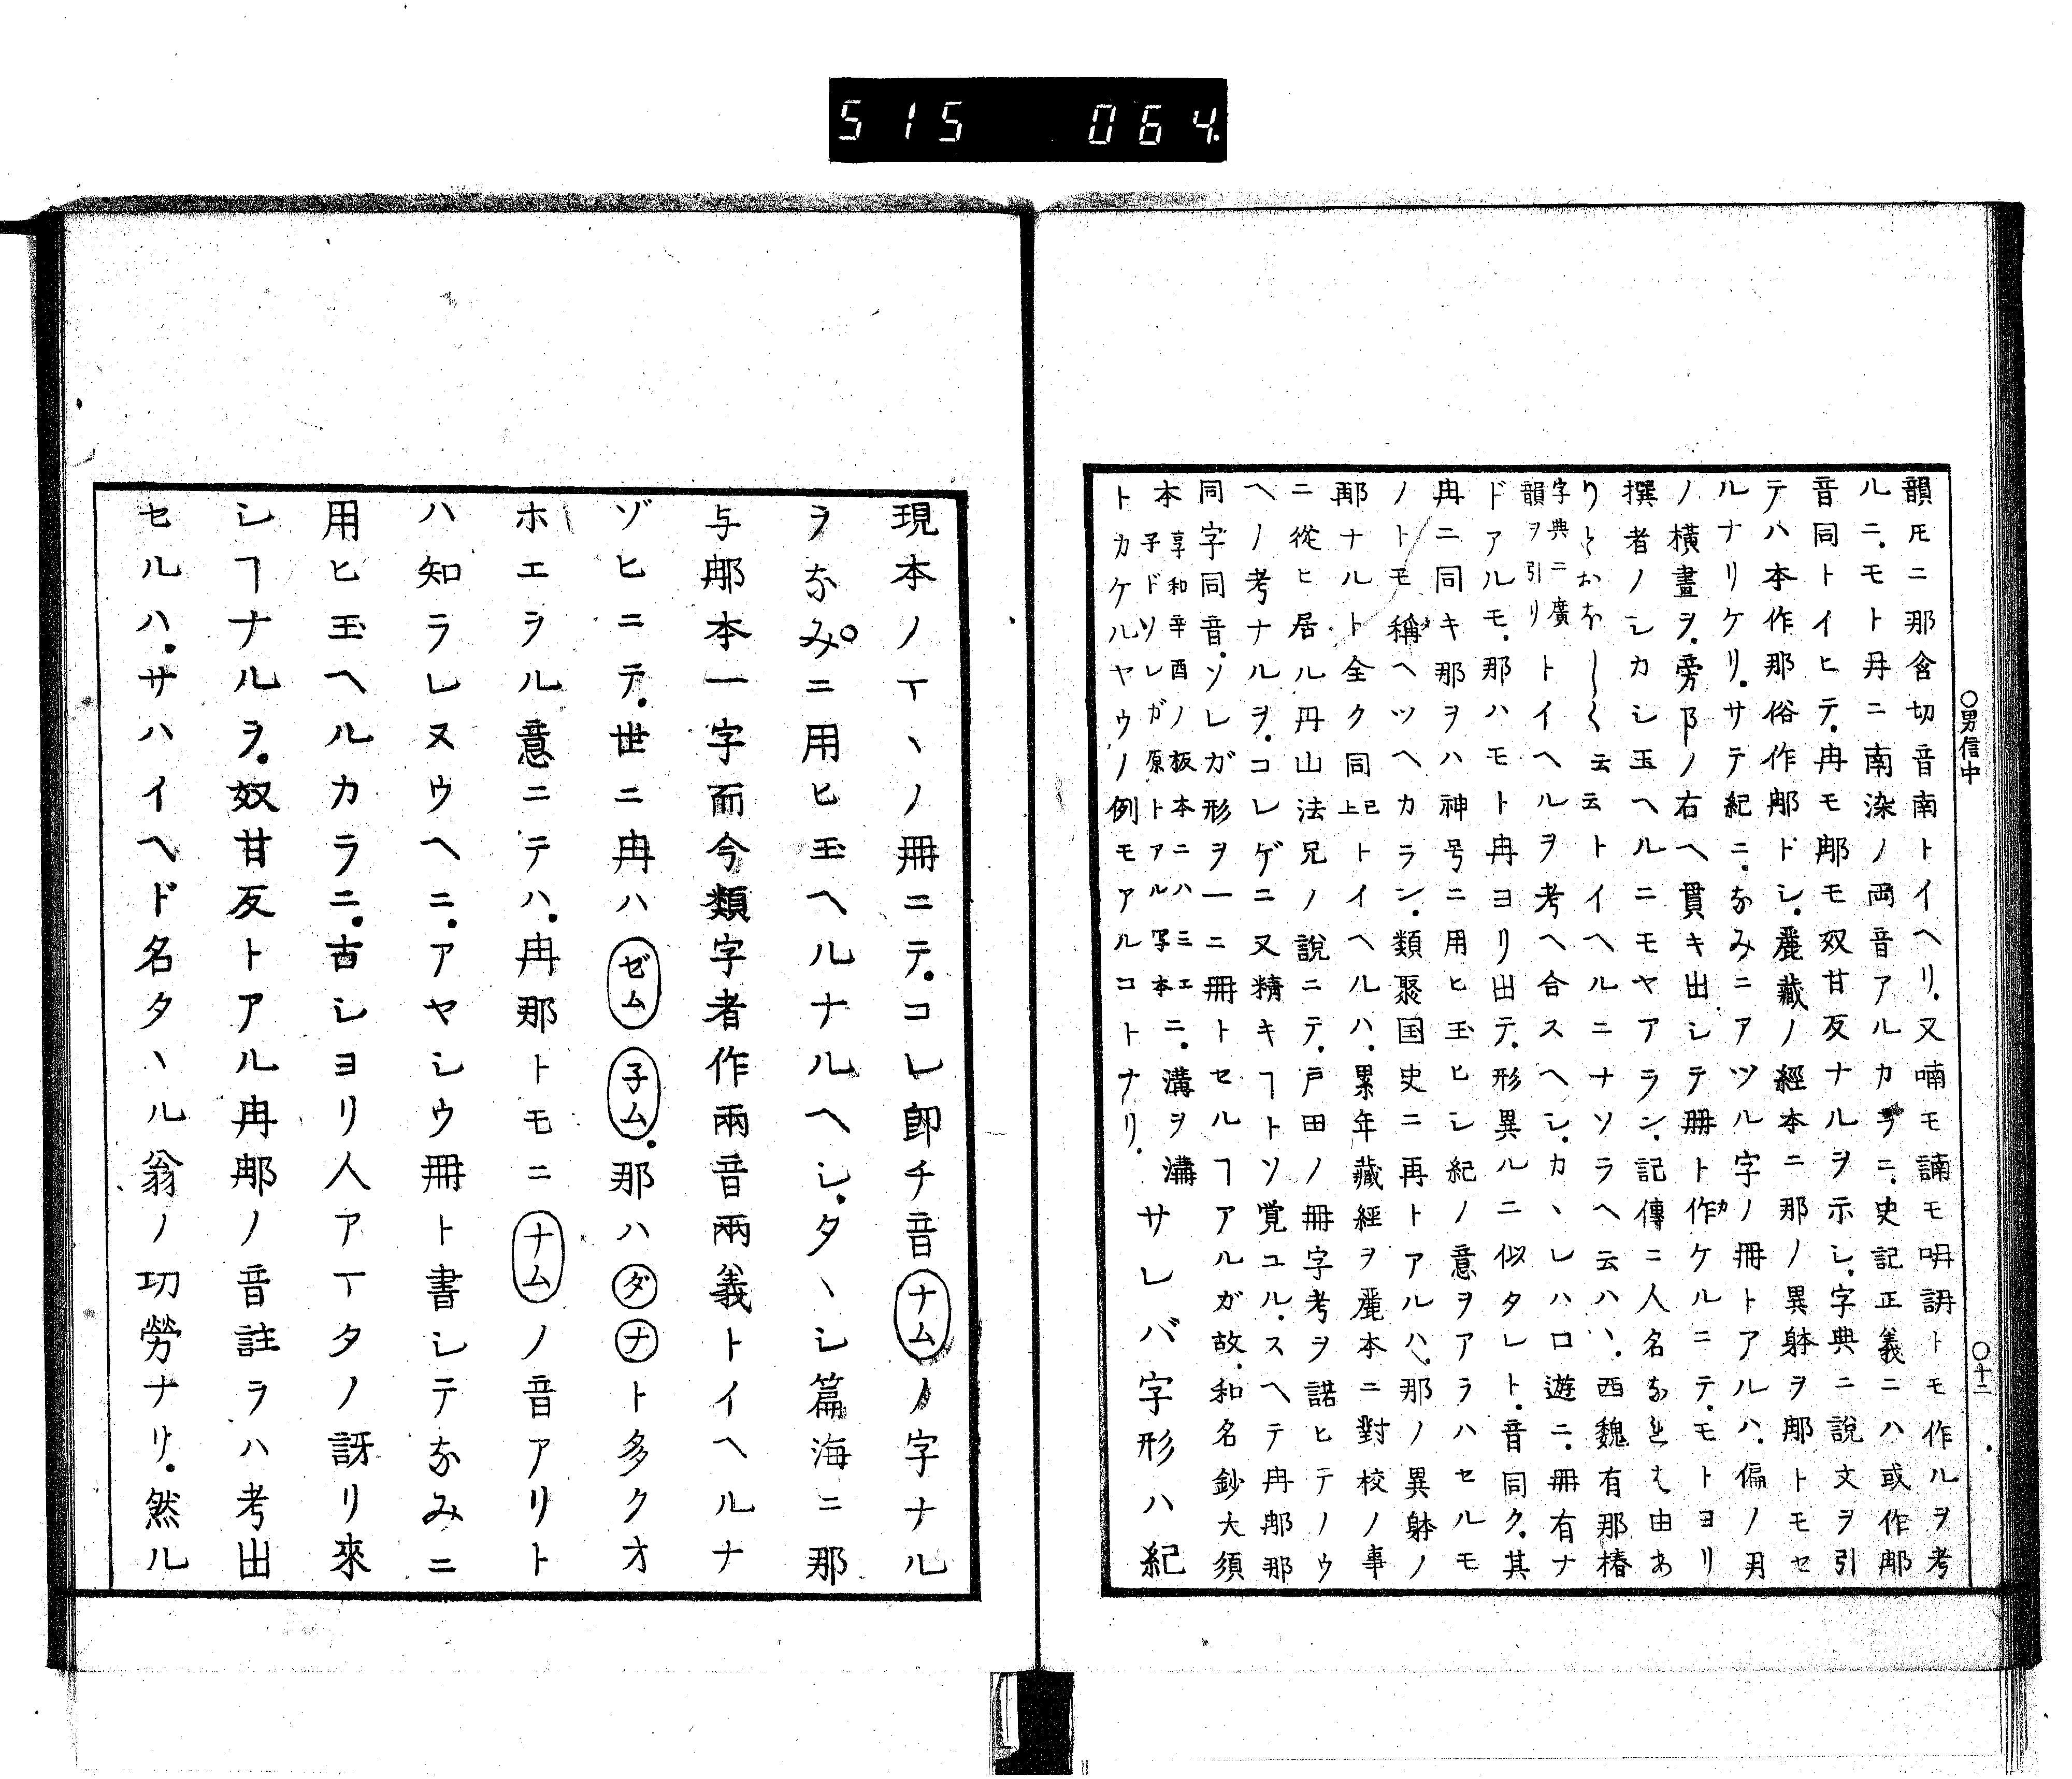 515 064
○男信中
○十二
韻𪜈ニ那含切音南トイヘリ．又喃モ諵モ呥詽トモ作ルヲ考
ルニ．モト冄ニ南染ノ両音アルカラニ．史記正義ニハ或作𨙻
音同トイヒテ．冉モ𨙻モ奴甘反ナルヲ示シ．字典ニ説文ヲ引
テハ本作那俗作𨙻ドシ．麗藏ノ經本ニ那ノ異躰ヲ𨙻トモセ
ルナリケリ．サテ紀ニ．なみニアツル字ノ冊トアルハ．偏ノ冄
ノ横畫ヲ．旁阝ノ右ヘ貫キ出シテ冊ト作ケルニテ．モトヨリ
撰者ノシカシ玉ヘルニモヤアラン．記傳ニ人名などは由あ
りとおぼし〱云云トイヘルニナソラヘ云ハヽ．西魏有那椿
字典ニ廣韻ヲ引リトイヘルヲ考ヘ合スヘシ．カヽレハロ遊ニ．冊有ナ
ドアルモ．那ハモト冉ヨリ出テ．形異ルニ似タレト．音同ク．其
冉ニ同キ那ヲハ神号ニ用ヒ玉ヒシ紀ノ意ヲアラハセルモ
ノトモ稱ヘツヘカラン．類聚国史ニ再トアルハ．那ノ異躰ノ
𨙻ナルト全ク同已上トイヘルハ．累年藏經ヲ麗本ニ對校ノ事
ニ從ヒ居ル丹山法兄ノ説ニテ．戸田ノ冊字考ヲ諾ヒテノウ
ヘノ考ナルヲ．コレゲニ又精キヿトソ覚ユル．スヘテ冉𨙻那
同字同音．ソレガ形ヲ一ニ冊トセルヿアルガ故．和名鈔大須
本享和辛酉ノ板本ニハミエ子ドソレガ原トアル写本ニ．溝ヲ溝
トカケルヤウノ例モアルコトナリ．サレバ字形ハ紀
現本ノㄒヽノ冊ニテ．コレ即チ音ナムノ字ナル
ヲなみニ用ヒ玉ヘルナルヘシ．タヽシ篇海ニ那
与𨙻本一字而今類字者作兩音兩義トイヘルナ
ゾヒニテ．世ニ冉ハゼム子ム．那ハダナト多クオ
ホエヲル意ニテハ．冉那トモニナムノ音アリト
ハ知ラレヌウヘニ．アヤシウ冊ト書シテなみニ
用ヒ玉ヘルカラニ．古シヨリ人アㄒタノ訝リ來
シヿナルヲ．奴甘反トアル冉𨙻ノ音註ヲハ考出
セルハ．サハイヘド名タヽル翁ノ功勞ナリ．然ル